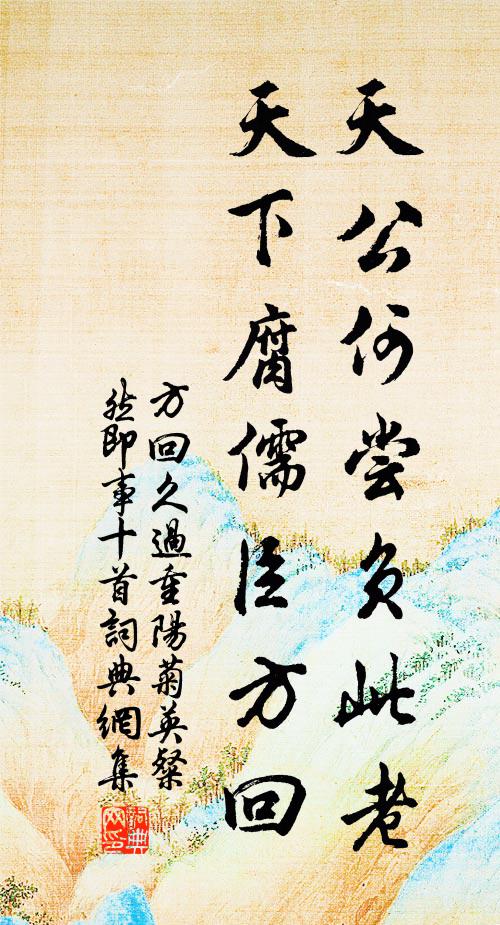 天公何尝负此老
天下腐儒臣方回
方回久過重陽菊英粲
然即事十首詞典網集
詞典
网印